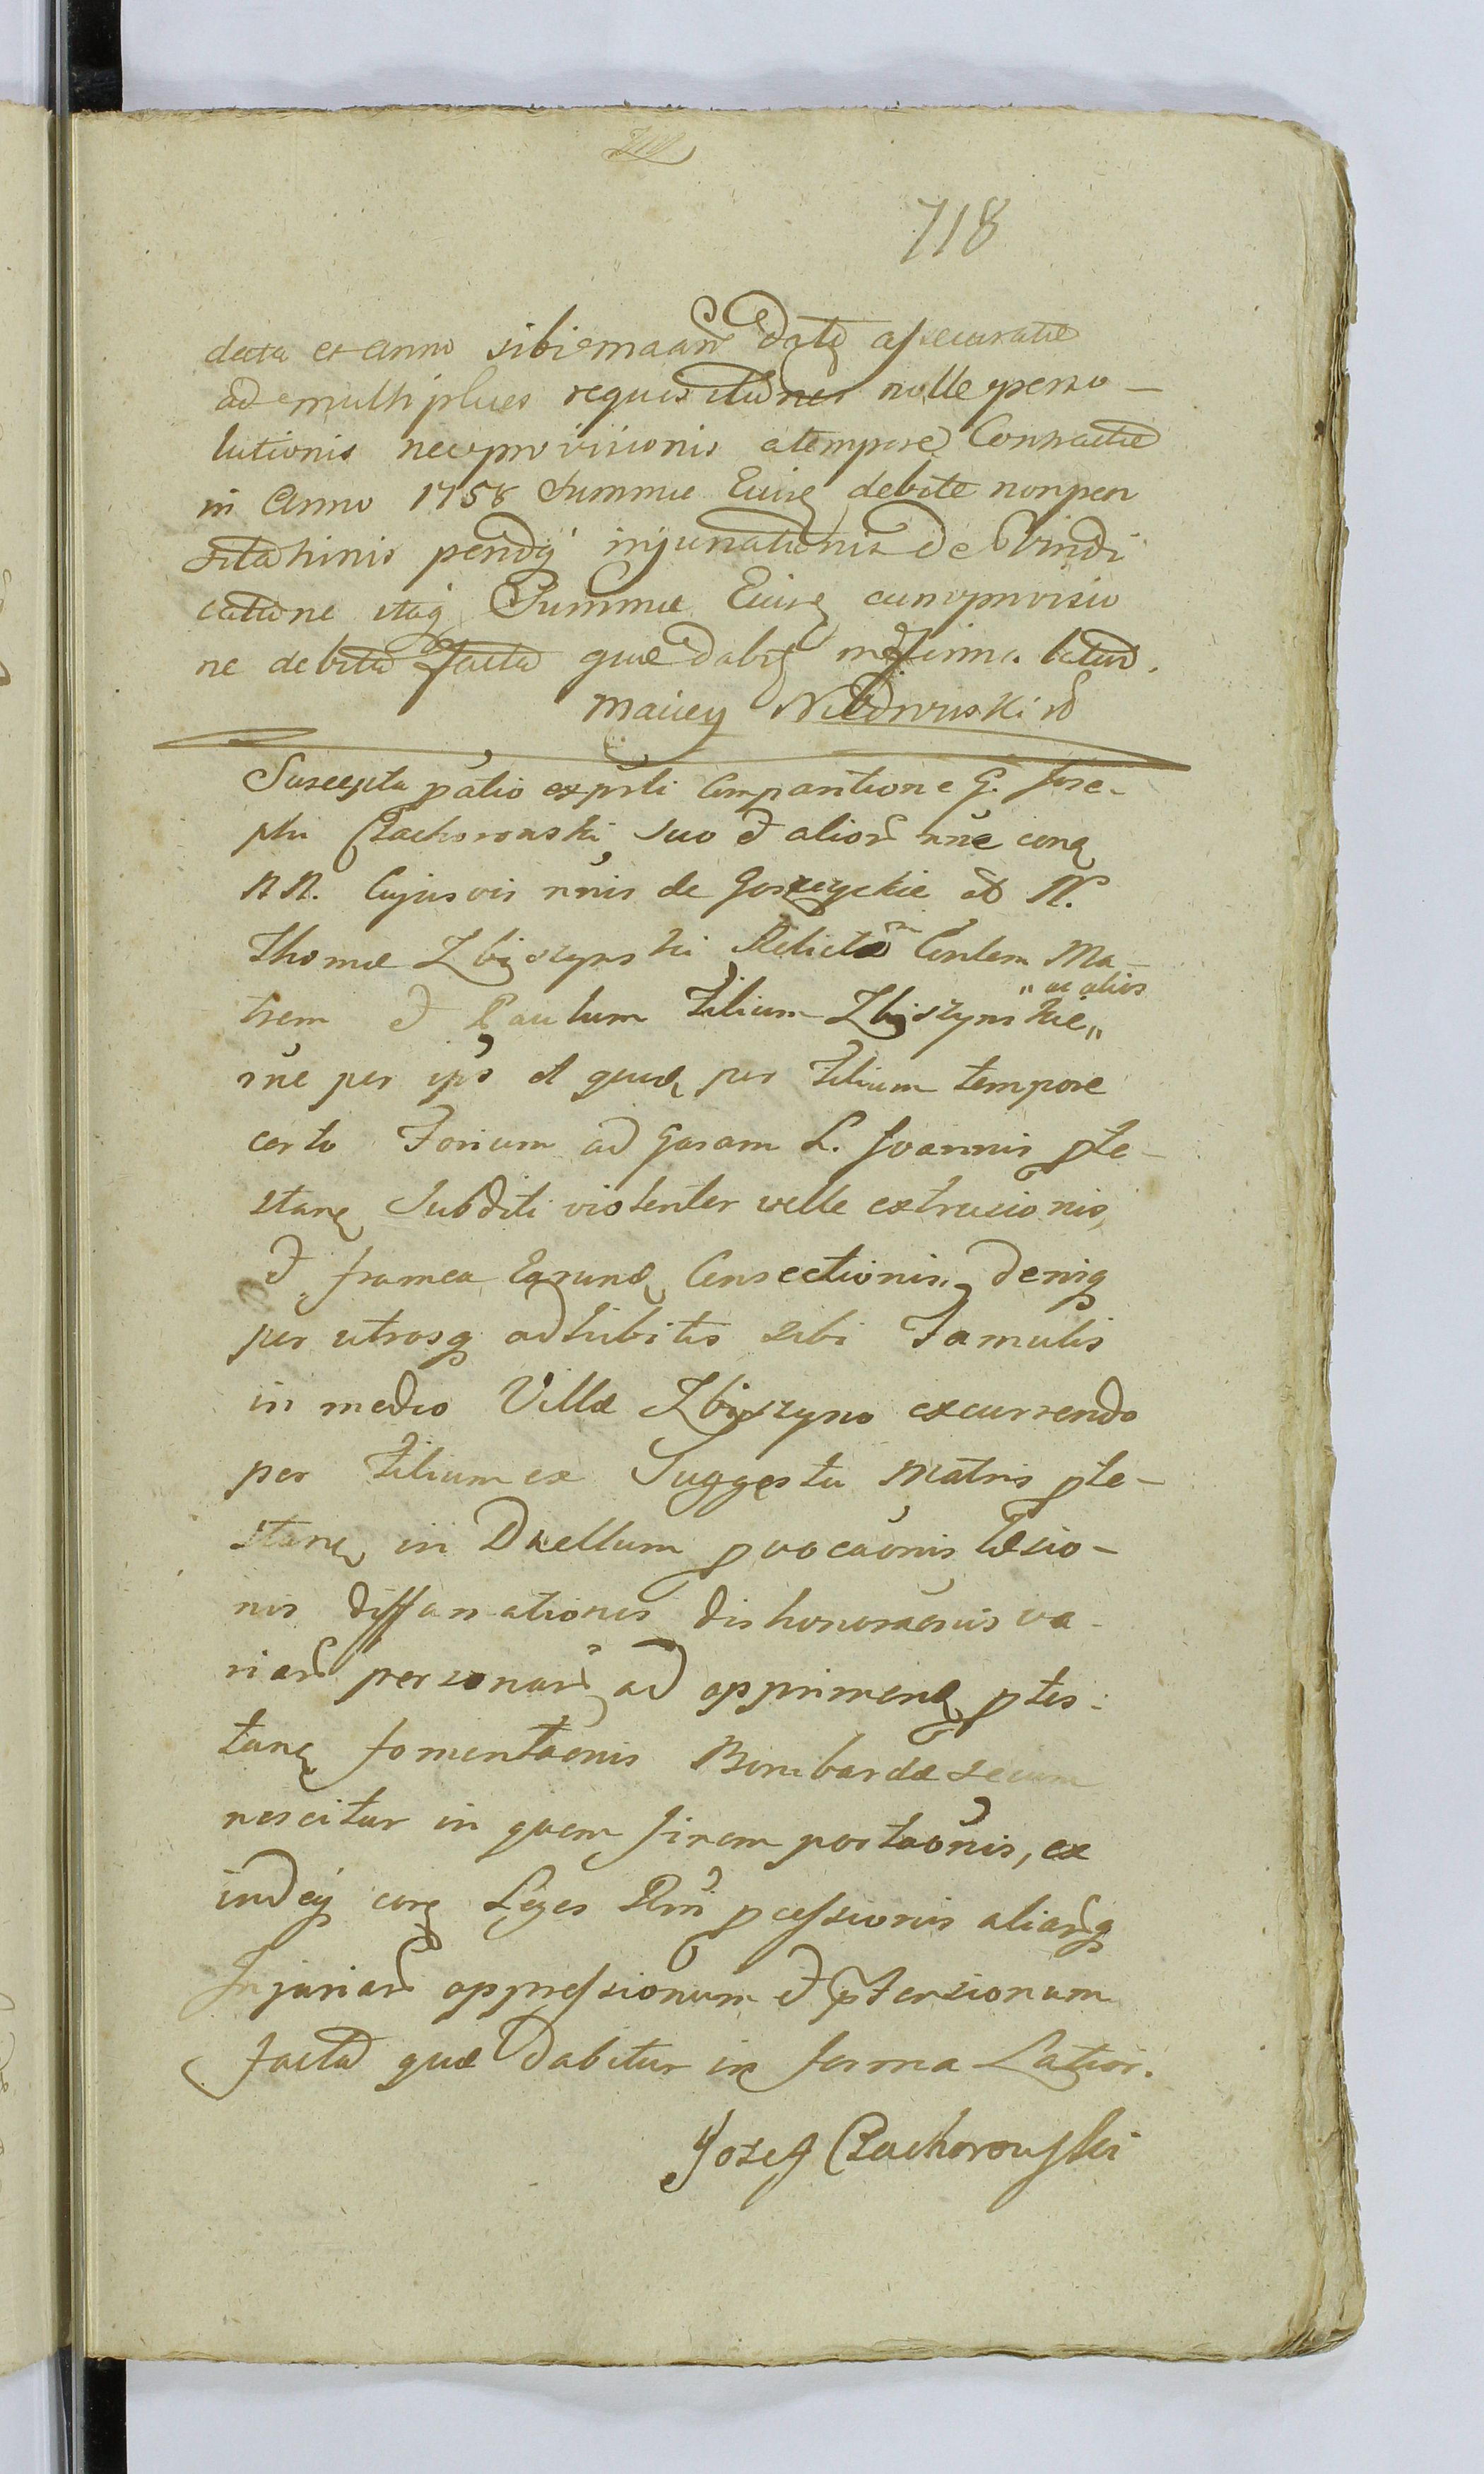 718
data et Anno sibi manu Data assecuratae
ad multiplices requisitiones nolle perso-
lutionis nec provisionis a tempore Contractae
in Anno 1758 Summae Ejusq debite non pen
pendij injunationis de Vindi
catione itaq Summae Ejusq cum provisio
ne debita facta quae dabit in forma latiori.
Maciey Niedrwuski
Suscepta ptatio ex prti Comparitione G. Jose-
phi Czachorowski suo et alior nne cong
NN. Cujusvis nnis de Goszczyckie et N.
Thomae Zbiszynski Relictam Conlem Ma-
trem et Paulum Filium Zbiszynskie „ac alios
rne per ips et quidq per Filium tempore
certo Forium ad Gasam L. Joannis pte-
stanq Subditi violenter velle extrusionis,
et framea Eqrunq Consectionis, deniq
per utrosq adhibitis sibi Famulis
in medio Villae Zbiszyno excurrendo
per Filium ex Suggestu Matris pte-
stanq in Duellum pvocaonis laesio-
nis diffamationis dishonoraonis va-
riar personar ad opprimenq ptes-
tanq fomentaonis Bombardae secum
nescitur in quem finem portaonis, ex
indeq conq Leges Rni pcessionis aliarq
Injuriar oppressionum et ptensionum
facta quae Dabitur in forma Latior.
Jozef Czachorowski